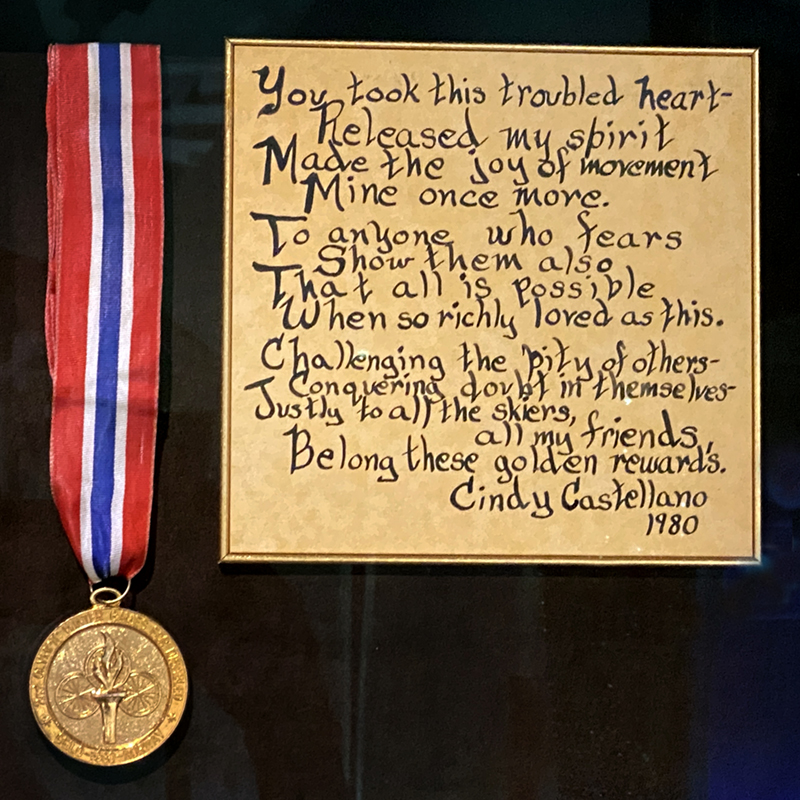 You took this troubled heart-
Released my spirit
Made the joy of movement
Mine once more.
To anyone who fears
Show them also
That all is possible
When so richly loved as this.
Challenging the pity of others-
Conquering doubt in themselves-
Justly to all the skiers,
all my friends,
Belong these golden rewards.
Cindy Castellano
1980